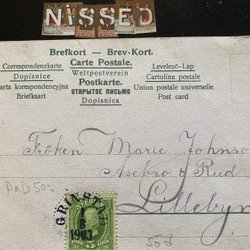 NISSED
Brefkort - Brev-Kort.
Correspondenzkarte Carte Postale. Levelező-Lap
Dopisnice Weltpostverein Cartolina postale
Karta korespondencyjna Postkarte. Union postale universelle
Briefkaart ОТКРЫТОЕ ПИСЬМО Post card
Dopisnica
Fröken Marie Johnson
Rud
Lilleby
SVERIGE
1903
5